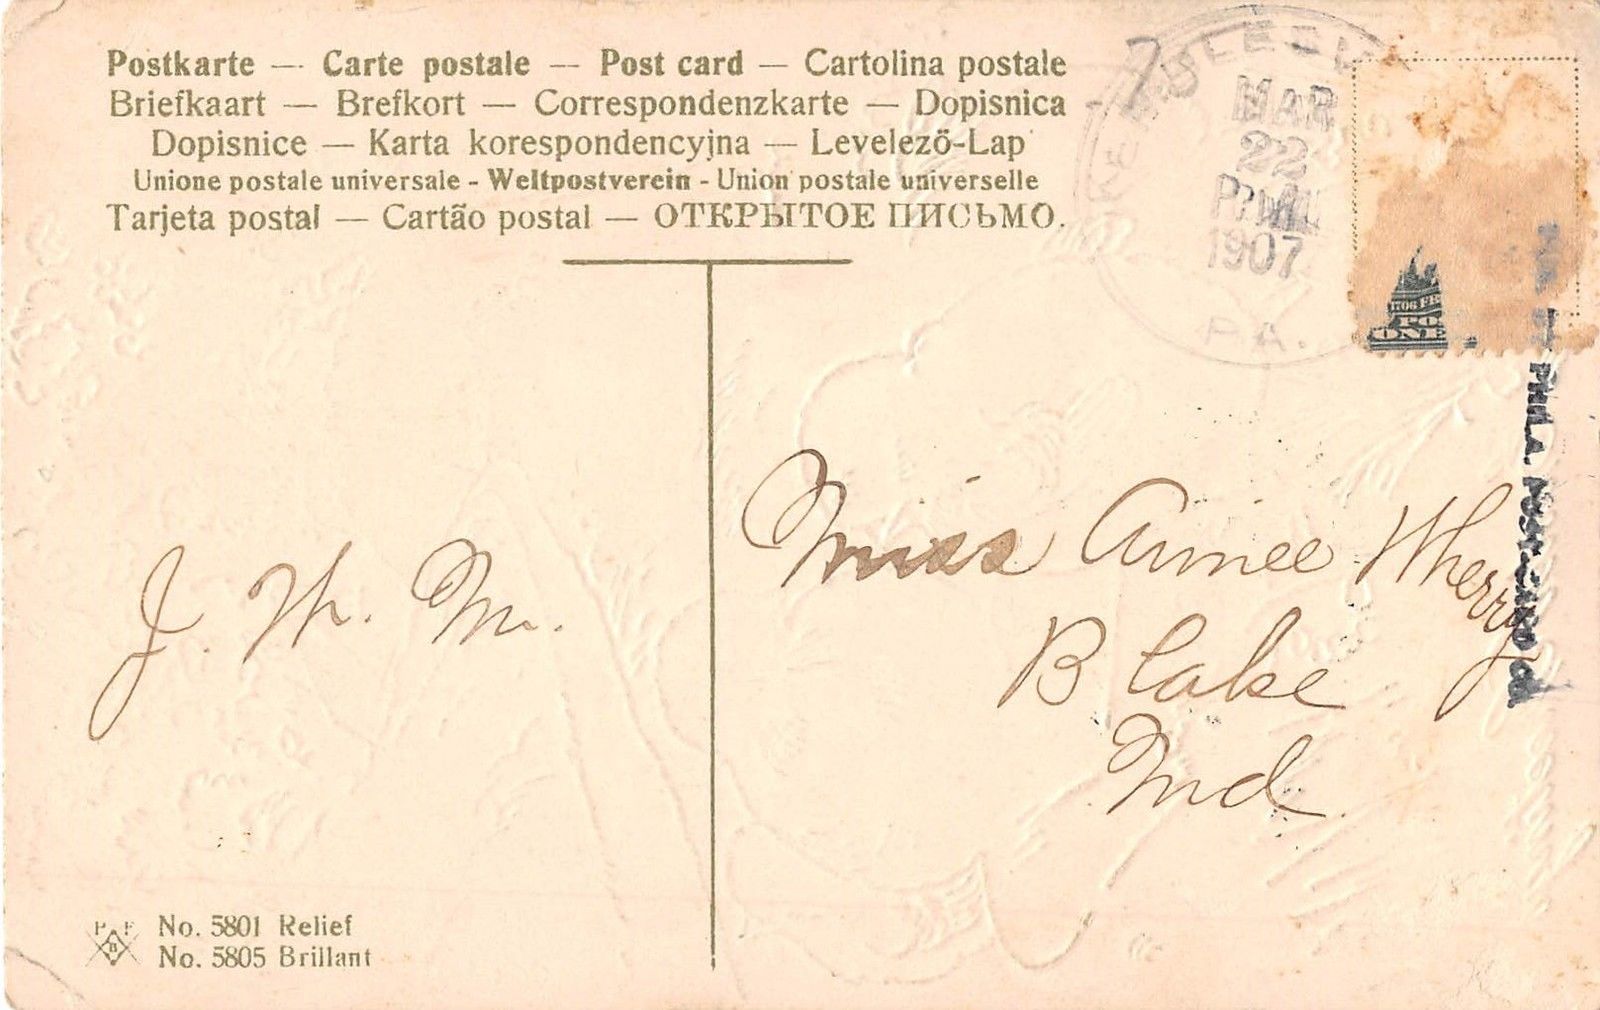 Postkarte — Carte postale — Post card — Cartolina postale
Briefkaart — Brefkort — Correspondenzkarte — Dopisnica
Dopisnice — Karta korespondencyjna — Levelező-Lap
Unione postale universale - Weltpostverein - Union postale universelle
Tarjeta postal — Cartão postal — ОТКРЫТОЕ ПИСЬМО.
MAR
22
1907
PA.
1706 FR
PO
ONE
PHILA. POST CARD
Miss Aimee Wherry
Blake
Md
J. W. M.
P F
B
No. 5801 Relief
No. 5805 Brillant